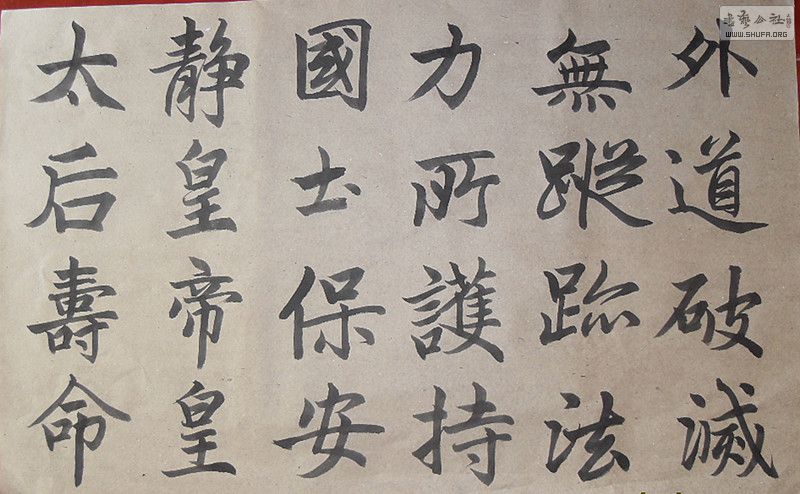 外道破滅
無蹤跡法
力所護持
國土保安
靜皇帝皇
太后壽命
WWW.SHUFA.ORG